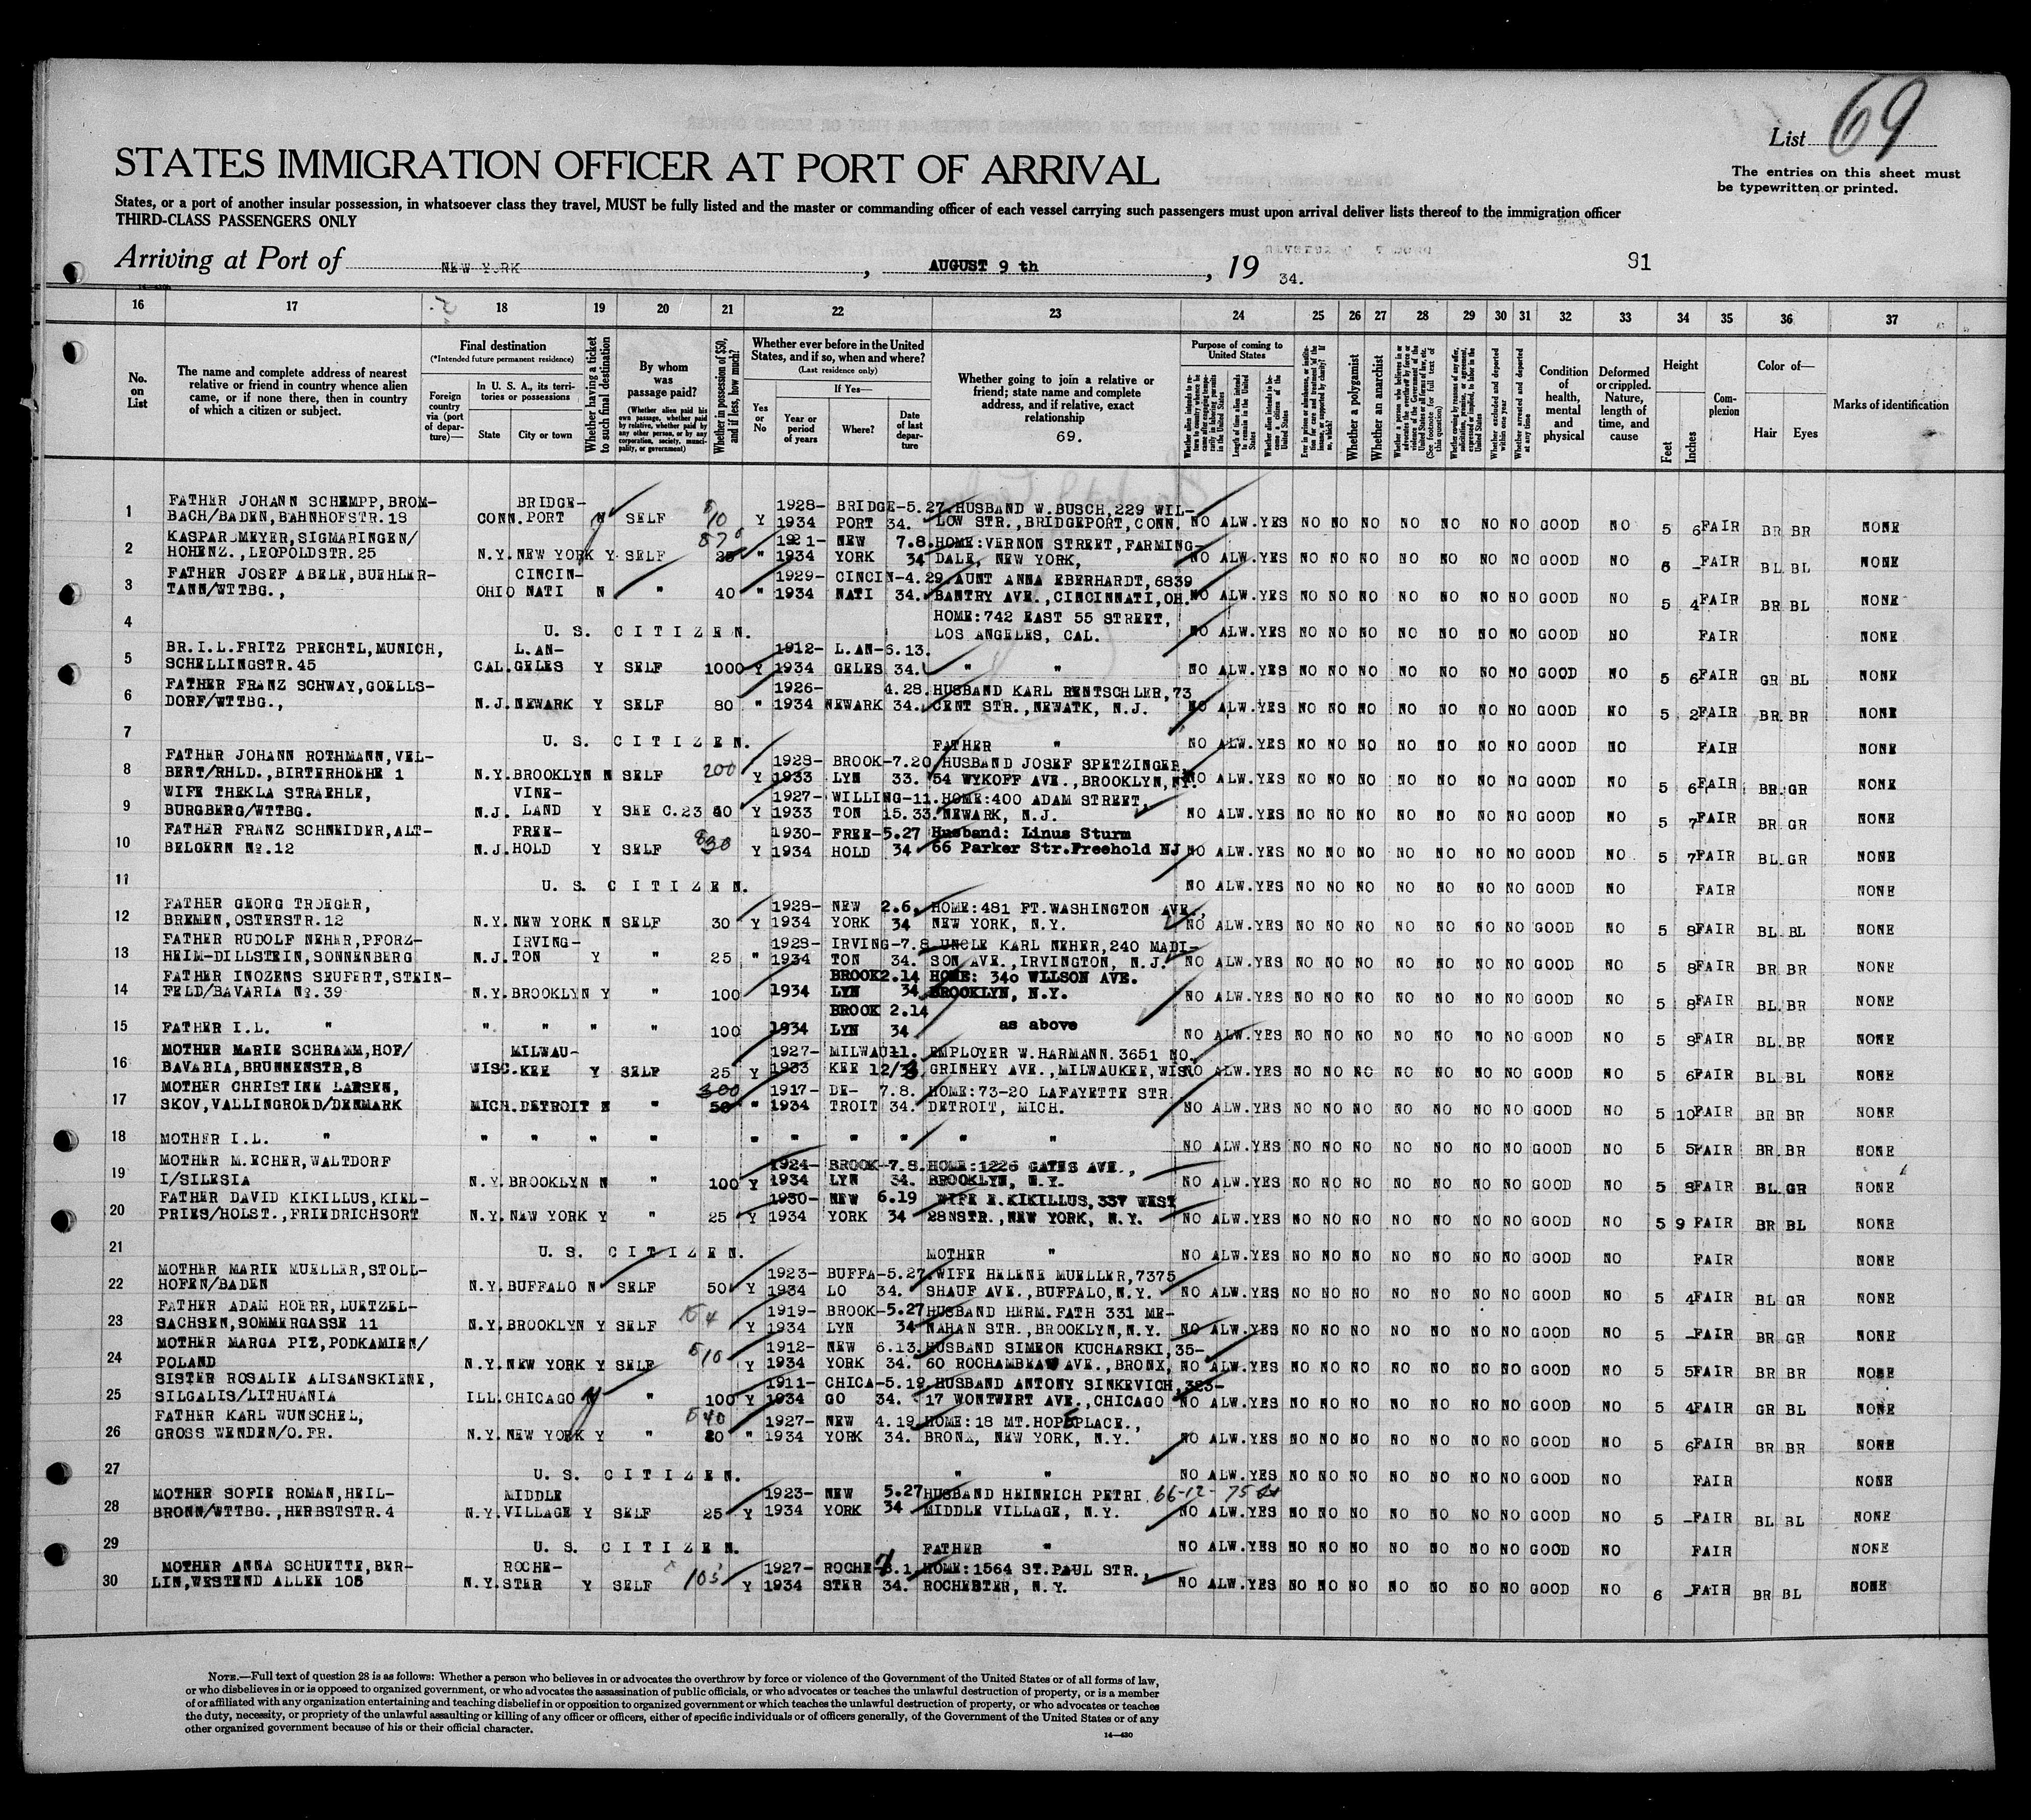 List 69
The entries on this sheet must
be typewritten or printed.
STATES IMMIGRATION OFFICER AT PORT OF ARRIVAL
States, or a port of another insular possession, in whatsoever class they travel, MUST be fully listed and the master or commanding officer of each vessel carrying such passengers must upon arrival deliver lists thereof to the immigration officer
THIRD-CLASS PASSENGERS ONLY
Arriving at Port of NEW YORK, AUGUST 9 th, 19 34. 91
16 17 18 19 20 21 22 23 24 25 26 27 28 29 30 31 32 33 34 35 36 37
No. on List
The name and complete address of nearest relative or friend in country whence alien came, or if none there, then in country of which a citizen or subject.
Final destination
(*Intended future permanent residence)
Foreign country via (port of departure)—
In U. S. A., its territories or possessions
State City or town
Whether having a ticket to such final destination
By whom was passage paid?
(Whether alien paid his own passage, whether paid by relative, whether paid by any other person, or by any corporation, society, municipality, or government)
Whether in possession of $50, and if less, how much?
Whether ever before in the United States, and if so, when and where?
(Last residence only)
Yes or No
If Yes—
Year or period of years
Where?
Date of last departure
Whether going to join a relative or friend; state name and complete address, and if relative, exact relationship
69.
Purpose of coming to United States
Whether a polygamist
Whether an anarchist
Whether excluded and deported within one year
Whether arrested and deported at any time
Condition of health, mental and physical
Deformed or crippled. Nature, length of time, and cause
Height
Feet Inches
Complexion
Color of—
Hair Eyes
Marks of identification
1 FATHER JOHANN SCHEMPP, BROM-
BACH/BADEN, BAHNHOFSTR.18 CONN. BRIDGE-PORT SELF 10 Y 1928-1934 BRIDGE-PORT 5.27.34. HUSBAND W.BUSCH, 229 WIL-
LOW STR., BRIDGEPORT, CONN. NO ALW. YES NO NO NO NO NO NO NO GOOD NO 5 6 FAIR BR BR NONE
2 KASPAR MEYER, SIGMARINGEN/
HOHENZ., LEOPOLDSTR.25 N.Y. NEW YORK Y SELF 25 " 1921-1934 NEW YORK 7.8.34 HOME: VERNON STREET, FARMING-
DALE, NEW YORK, NO ALW. YES NO NO NO NO NO NO NO GOOD NO 6 - FAIR BL BL NONE
3 FATHER JOSEF ABELE, BUEHLER-
TANN/WTTBG., OHIO CINCIN-NATI N " 40 " 1929-1934 CINCIN-NATI 4.29.34. AUNT ANNA EBERHARDT, 6839
BANTRY AVE., CINCINNATI, OH. NO ALW. YES NO NO NO NO NO NO NO GOOD NO 5 4 FAIR BR BL NONE
4 U. S. CITIZEN. HOME: 742 EAST 55 STREET,
LOS ANGELES, CAL. NO ALW. YES NO NO NO NO NO NO NO GOOD NO FAIR NONE
5 BR.I.L. FRITZ PRECHTL, MUNICH,
SCHELLINGSTR.45 CAL. L.AN-GELES Y SELF 1000 Y 1912-1934 L.AN-GELES 6.13.34. " " NO ALW. YES NO NO NO NO NO NO NO GOOD NO 5 6 FAIR GR BL NONE
6 FATHER FRANZ SCHWAY, GOELLS-
DORF/WTTBG., N.J. NEWARK Y SELF 80 " 1926-1934 NEWARK 4.28.34. HUSBAND KARL RENTSCHLER, 73
CENT STR., NEWATK, N.J. NO ALW. YES NO NO NO NO NO NO NO GOOD NO 5 2 FAIR BR BR NONE
7 U. S. CITIZEN. FATHER " NO ALW. YES NO NO NO NO NO NO NO GOOD NO FAIR NONE
8 FATHER JOHANN ROTHMANN, VEL-
BERT/RHLD., BIRTERHOEHE 1 N.Y. BROOKLYN N SELF 200 Y 1928-1933 BROOK-LYN 7.20.33. HUSBAND JOSEF SPETZINGER,
54 WYKOFF AVE., BROOKLYN, NY. NO ALW. YES NO NO NO NO NO NO NO GOOD NO 5 6 FAIR BR GR NONE
9 WIFE THEKLA STRAEHLE,
BURGBERG/WTTBG. N.J. VINE-LAND Y SEE C.23 Y 1927-1933 WILLING-TON 11.15.33. HOME: 400 ADAM STREET,
NEWARK, N.J. NO ALW. YES NO NO NO NO NO NO NO GOOD NO 5 7 FAIR BR GR NONE
10 FATHER FRANZ SCHNEIDER, ALT-
BELGERN No.12 N.J. FREE-HOLD Y SELF 30 Y 1930-1934 FREE-HOLD 5.27 34 Husband: Linus Sturm
66 Parker Str. Freehold NJ NO ALW. YES NO NO NO NO NO NO NO GOOD NO 5 7 FAIR BL GR NONE
11 U. S. CITIZEN. NO ALW. YES NO NO NO NO NO NO NO GOOD NO FAIR NONE
12 FATHER GEORG TROEGER,
BREMEN, OSTERSTR.12 N.Y. NEW YORK N SELF 30 Y 1928-1934 NEW YORK 2.6. 34 HOME: 481 FT. WASHINGTON AVE.,
NEW YORK, N.Y. NO ALW. YES NO NO NO NO NO NO NO GOOD NO 5 8 FAIR BL BL NONE
13 FATHER RUDOLF NEHER, PFORZ-
HEIM-DILLSTEIN, SONNENBERG N.J. IRVING-TON Y " 25 " 1928-1934 IRVING-TON 7.8.34. UNCLE KARL NEHER, 240 MADI-
SON AVE., IRVINGTON, N.J. NO ALW. YES NO NO NO NO NO NO NO GOOD NO 5 8 FAIR BR BR NONE
14 FATHER INOZENS SEUFERT, STEIN-
FELD/BAVARIA No.39 N.Y. BROOKLYN Y " 100 1934 BROOK LYN 2.14 34 HOME: 340 WLLSON AVE.
BROOKLYN, N.Y. NO ALW. YES NO NO NO NO NO NO NO GOOD NO 5 8 FAIR BL BR NONE
15 FATHER I.L. " " " " " 100 1934 BROOK LYN 2.14 34 as above NO ALW. YES NO NO NO NO NO NO NO GOOD NO 5 8 FAIR BL BR NONE
16 MOTHER MARIE SCHRAMM, HOF/
BAVARIA, BRUNNENSTR,8 WISC. MILWAU-KEE Y SELF 25 Y 1927-1933 MILWAU-KEE EMPLOYER W.HARMANN. 3651 NO.
GRINHEY AVE., MILWAUKEE, WIS. NO ALW. YES NO NO NO NO NO NO NO GOOD NO 5 6 FAIR BL BL NONE
17 MOTHER CHRISTINE LARSEN,
SKOV, VALLINGROED/DENMARK MICH. DETROIT N " 300 50 " 1917-1934 DE-TROIT 7.8.34. HOME: 73-20 LAFAYETTE STR.
DETROIT, MICH. NO ALW. YES NO NO NO NO NO NO NO GOOD NO 5 10 FAIR BR BR NONE
18 MOTHER I.L. " " " " " " " " " " " NO ALW. YES NO NO NO NO NO NO NO GOOD NO 5 5 FAIR BR BR NONE
19 MOTHER M.ECHER, WALTDORF
I/SILESIA N.Y. BROOKLYN N " 100 Y 1924-1934 BROOK-LYN 7.8.34. HOME: 1226 GATES AVE.,
BROOKLYN, N.Y. NO ALW. YES NO NO NO NO NO NO NO GOOD NO 5 8 FAIR BL GR NONE
20 FATHER DAVID KIKILLUS, KIEL-
PRIES/HOLST., FRIEDRICHSORT N.Y. NEW YORK Y " 25 Y 1930-1934 NEW YORK 6.19 34 WIFE E.KIKILLUS, 337 WEST
28NSTR., NEW YORK, N.Y. NO ALW. YES NO NO NO NO NO NO NO GOOD NO 5 9 FAIR BR BL NONE
21 U. S. CITIZEN. MOTHER " NO ALW. YES NO NO NO NO NO NO NO GOOD NO FAIR NONE
22 MOTHER MARIE MUELLER, STOLL-
HOFEN/BADEN N.Y. BUFFALO N SELF 50 Y 1923-1934 BUFFA-LO 5.27.34. WIFE HELENE MUELLER, 7375
SHAUF AVE., BUFFALO, N.Y. NO ALW. YES NO NO NO NO NO NO NO GOOD NO 5 4 FAIR BL GR NONE
23 FATHER ADAM HOERR, LUETZEL-
SACHSEN, SOMMERGASSE 11 N.Y. BROOKLYN Y SELF Y 1919-1934 BROOK-LYN 5.27 34 HUSBAND HERM. FATH 331 ME-
NAHAN STR., BROOKLYN, N.Y. NO ALW. YES NO NO NO NO NO NO NO GOOD NO 5 - FAIR BR GR NONE
24 MOTHER MARGA PIZ, PODKAMIEN/
POLAND N.Y. NEW YORK Y SELF Y 1912-1934 NEW YORK 6.13.34. HUSBAND SIMEON KUCHARSKI, 35-
60 ROCHAMBEAU AVE., BRONX, NO ALW. YES NO NO NO NO NO NO NO GOOD NO 5 5 FAIR BR BR NONE
25 SISTER ROSALIE ALISANSKIENE,
SILGALIS/LITHUANIA ILL. CHICAGO " 100 Y 1911-1934 CHICA-GO 5.19.34. HUSBAND ANTONY SINKEVICH, 323-
17 WONTWERT AVE., CHICAGO NO ALW. YES NO NO NO NO NO NO NO GOOD NO 5 4 FAIR GR BL NONE
26 FATHER KARL WUNSCHEL,
GROSS WENDEN/O.FR. N.Y. NEW YORK Y " 40 " 1927-1934 NEW YORK 4.19.34. HOME: 18 MT. HOPE PLACE.,
BRONX, NEW YORK, N.Y. NO ALW. YES NO NO NO NO NO NO NO GOOD NO 5 6 FAIR BR BR NONE
27 U. S. CITIZEN. " " NO ALW. YES NO NO NO NO NO NO NO GOOD NO FAIR NONE
28 MOTHER SOFIE ROMAN, HEIL-
BRONN/WTTBG., HERBSTSTR.4 N.Y. MIDDLE VILLAGE Y SELF 25 Y 1923-1934 NEW YORK 5.27 34 HUSBAND HEINRICH PETRI 66-12- 75 St
MIDDLE VILLAGE, N.Y. NO ALW. YES NO NO NO NO NO NO NO GOOD NO 5 - FAIR BL BL NONE
29 U. S. CITIZEN. FATHER " NO ALW. YES NO NO NO NO NO NO NO GOOD NO FAIR NONE
30 MOTHER ANNA SCHUETTE, BER-
LIN, WESTEND ALLEE 108 N.Y. ROCHE-STER Y SELF 105 Y 1927-1934 ROCHE-STER 34. HOME: 1564 ST. PAUL STR.,
ROCHESTER, N.Y. NO ALW. YES NO NO NO NO NO NO NO GOOD NO 6 - FAIR BR BL NONE
NOTE.—Full text of question 28 is as follows: Whether a person who believes in or advocates the overthrow by force or violence of the Government of the United States or of all forms of law,
or who disbelieves in or is opposed to organized government, or who advocates the assassination of public officials, or who advocates or teaches the unlawful destruction of property, or is a member
of or affiliated with any organization entertaining and teaching disbelief in or opposition to organized government or which teaches the unlawful destruction of property, or who advocates or teaches
the duty, necessity, or propriety of the unlawful assaulting or killing of any officer or officers, either of specific individuals or of officers generally, of the Government of the United States or of any
other organized government because of his or their official character.
14—430